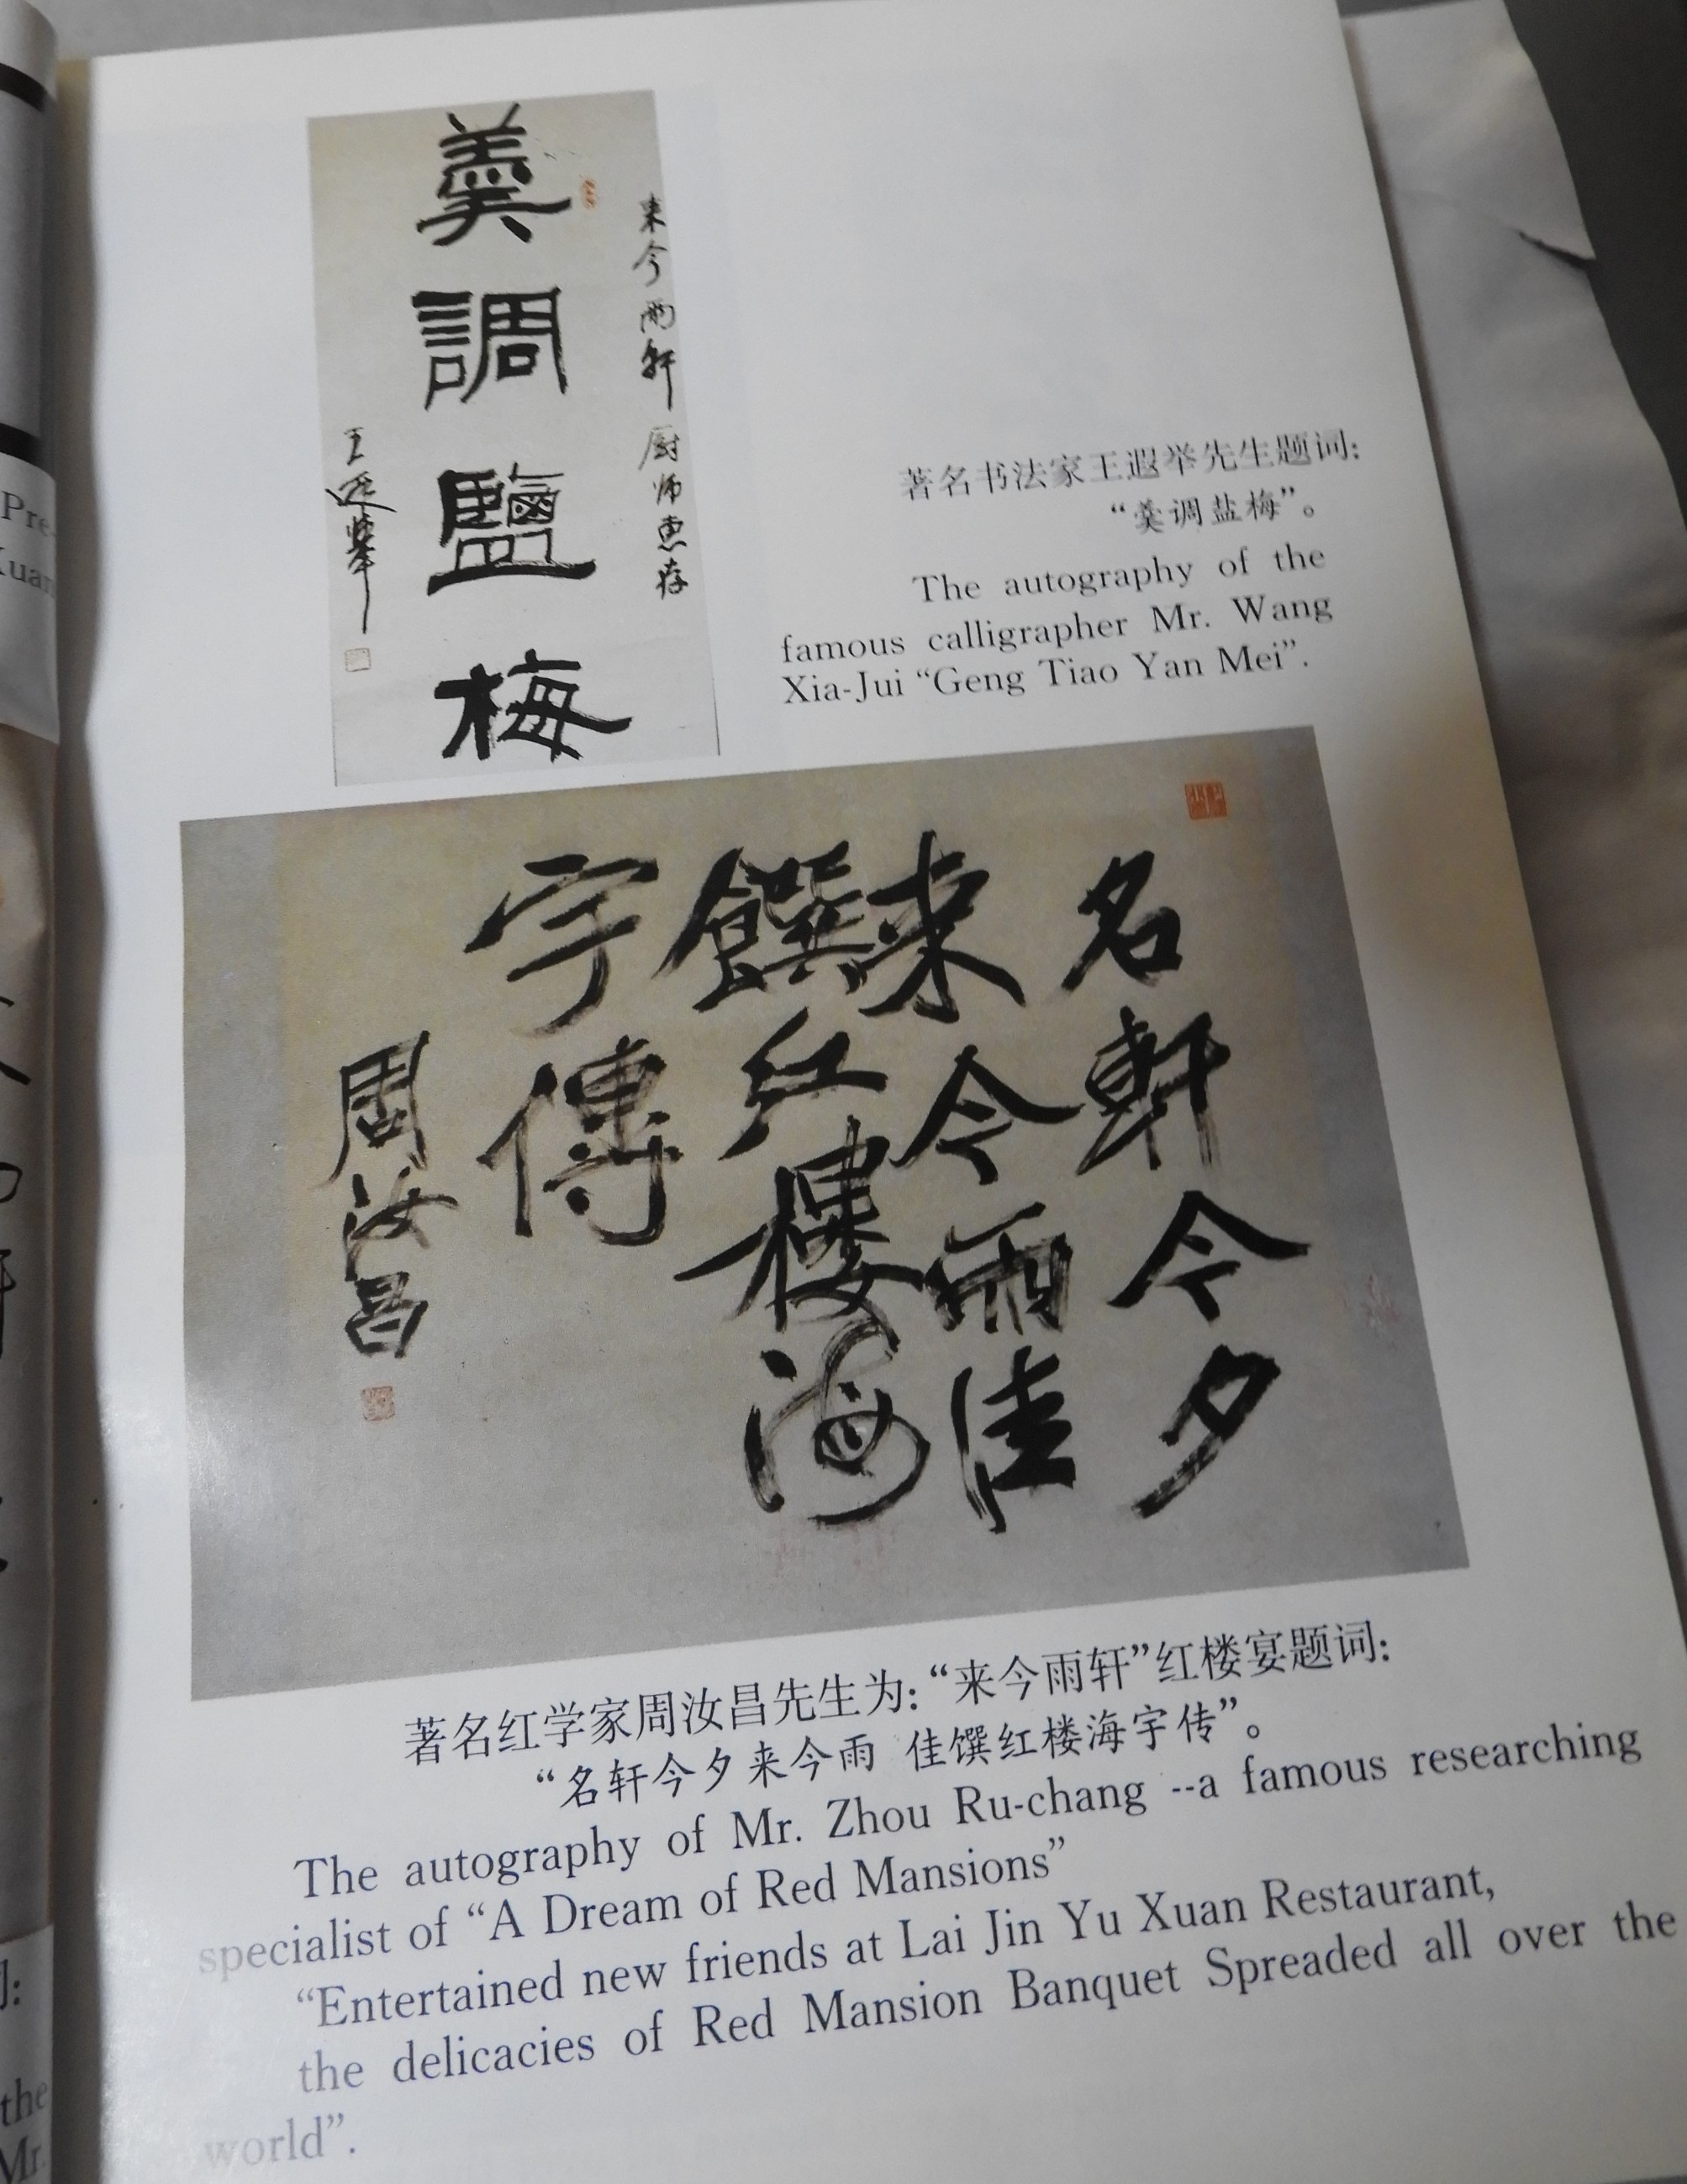 来今雨轩厨师惠存
羹調鹽梅
王遐举
著名书法家王遐举先生题词:
“羹调盐梅”。
The autography of the
famous calligrapher Mr. Wang
Xia-Jui “Geng Tiao Yan Mei”.
名軒今夕
来今雨佳
饌红樓海
宇傳
周汝昌
著名红学家周汝昌先生为:“来今雨轩”红楼宴题词:
“名轩今夕来今雨 佳馔红楼海宇传”。
The autography of Mr. Zhou Ru-chang --a famous researching
specialist of “A Dream of Red Mansions”
“Entertained new friends at Lai Jin Yu Xuan Restaurant,
the delicacies of Red Mansion Banquet Spreaded all over the
world”.
Pre-
the
Mr.